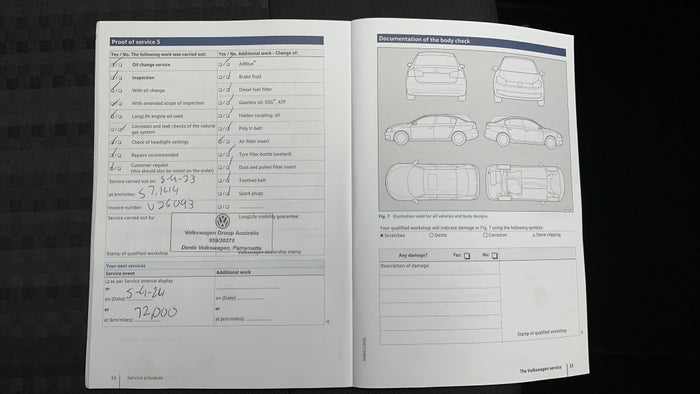 Proof of service 5
Yes / No The following work was carried out:
Oil change service
Inspection
With oil change
With extended scope of inspection
LongLife engine oil used
Corrosion and leak checks of the natural
gas system
Check of headlight settings
Repairs recommended
Customer request
(this should also be noted on the order)
Service carried out on: 5-4-23
at km/miles: 57,144
Invoice number: V26093
Service carried out by:
Stamp of qualified workshop
Yes / No Additional work – Change of:
AdBlue®
Brake fluid
Diesel fuel filter
Gearbox oil: DSG®, ATF
Haldex coupling: oil
Poly V-belt
Air filter insert
Tyre filler bottle (sealant)
Dust and pollen filter insert
Toothed belt
Spark plugs
LongLife mobility guarantee:
Volkswagen Group Australia
Denlo Volkswagen, Parramatta
Volkswagen dealership stamp
Your next services
Service event
Additional work
as per Service interval display
or
on (Date): 5-4-24
or
at (km/miles): 72,000
on (Date):
or
at (km/miles):
14 Service schedule
Documentation of the body check
Fig. 7 Illustration valid for all vehicles and body designs.
Your qualified workshop will indicate damage in Fig. 7 using the following symbols:
Scratches Dents Corrosion Stone chipping
Any damage? Yes: No:
Description of damage:
Stamp of qualified workshop
The Volkswagen service 15